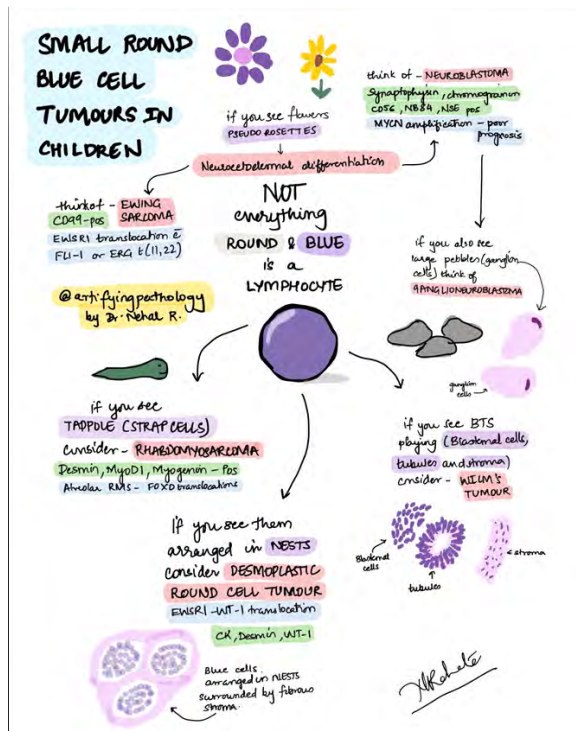 SMALL ROUND
BLUE CELL
TUMOURS IN
CHILDREN
if you see flowers
PSEUDOROSETTES
Neuroectodermal differentiation
think of - NEUROBLASTOMA
Synaptophysin, chromogranin
CD56, NB84, NSE pos
MYCN amplification - poor
prognosis
think of - EWING
CD99-pos SARCOMA
EWSR1 translocation c̄
FLI-1 or ERG t(11,22)
NOT
everything
ROUND & BLUE
is a
LYMPHOCYTE
if you also see
large pebbles (ganglion
cells) think of
GANGLIONEUROBLASTOMA
ganglion
cells
@artifyingpathology
by Dr. Nehal R.
if you see
TADPOLE (STRAP CELLS)
consider - RHABDOMYOSARCOMA
Desmin, MyoD1, Myogenin - Pos
Alveolar RMS - FOXO translocations
if you see BTS
playing (Blastemal cells,
tubules and stroma)
consider - WILM'S
TUMOUR
Blastemal
cells
tubules
stroma
if you see them
arranged in NESTS
consider DESMOPLASTIC
ROUND CELL TUMOUR
EWSR1-WT-1 translocation
CK, Desmin, WT-1
Blue cells
arranged in NESTS
surrounded by fibrous
stroma.